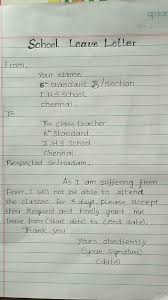 School Leave Letter
From,
Your Name,
6th Standard B/section
I.H.S School
Chennai.
To
The class teacher
6th Standard
I.H.S School
Chennai
Respected Sir/Madam,
As I am suffering from
Fever. I will not be able to attend
the classes for 3 days. please accept
their Request and kindly grant me
leave from (start date) to (end date).
Thank you
Yours obediently
(your signature)
(date)